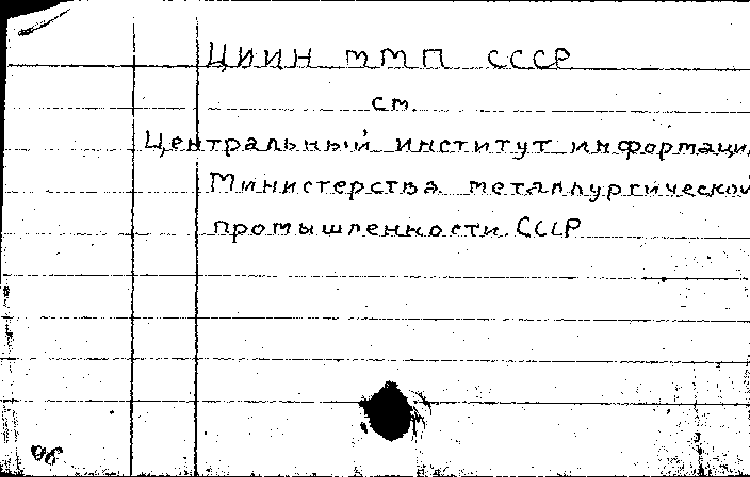 ЦИИН ММП СССР
см.
Центральный институт информаци
Министерства металлургической
промышленности СССР